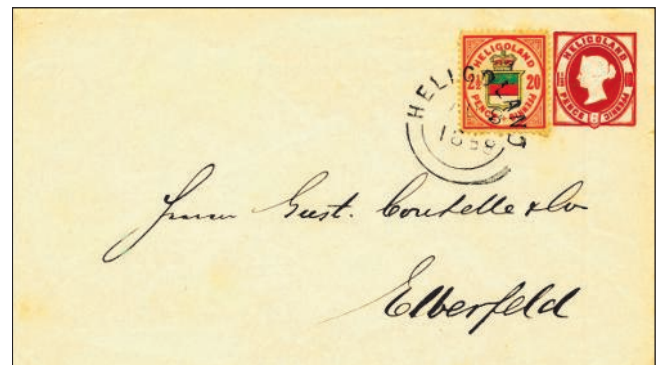 HELIGOLAND
2½ 20
PENCE PFENNIG
HELIGOLAND
PENCE PFENNIG
HELIGOLAND
Gust. Coutelle & Co
Elberfeld